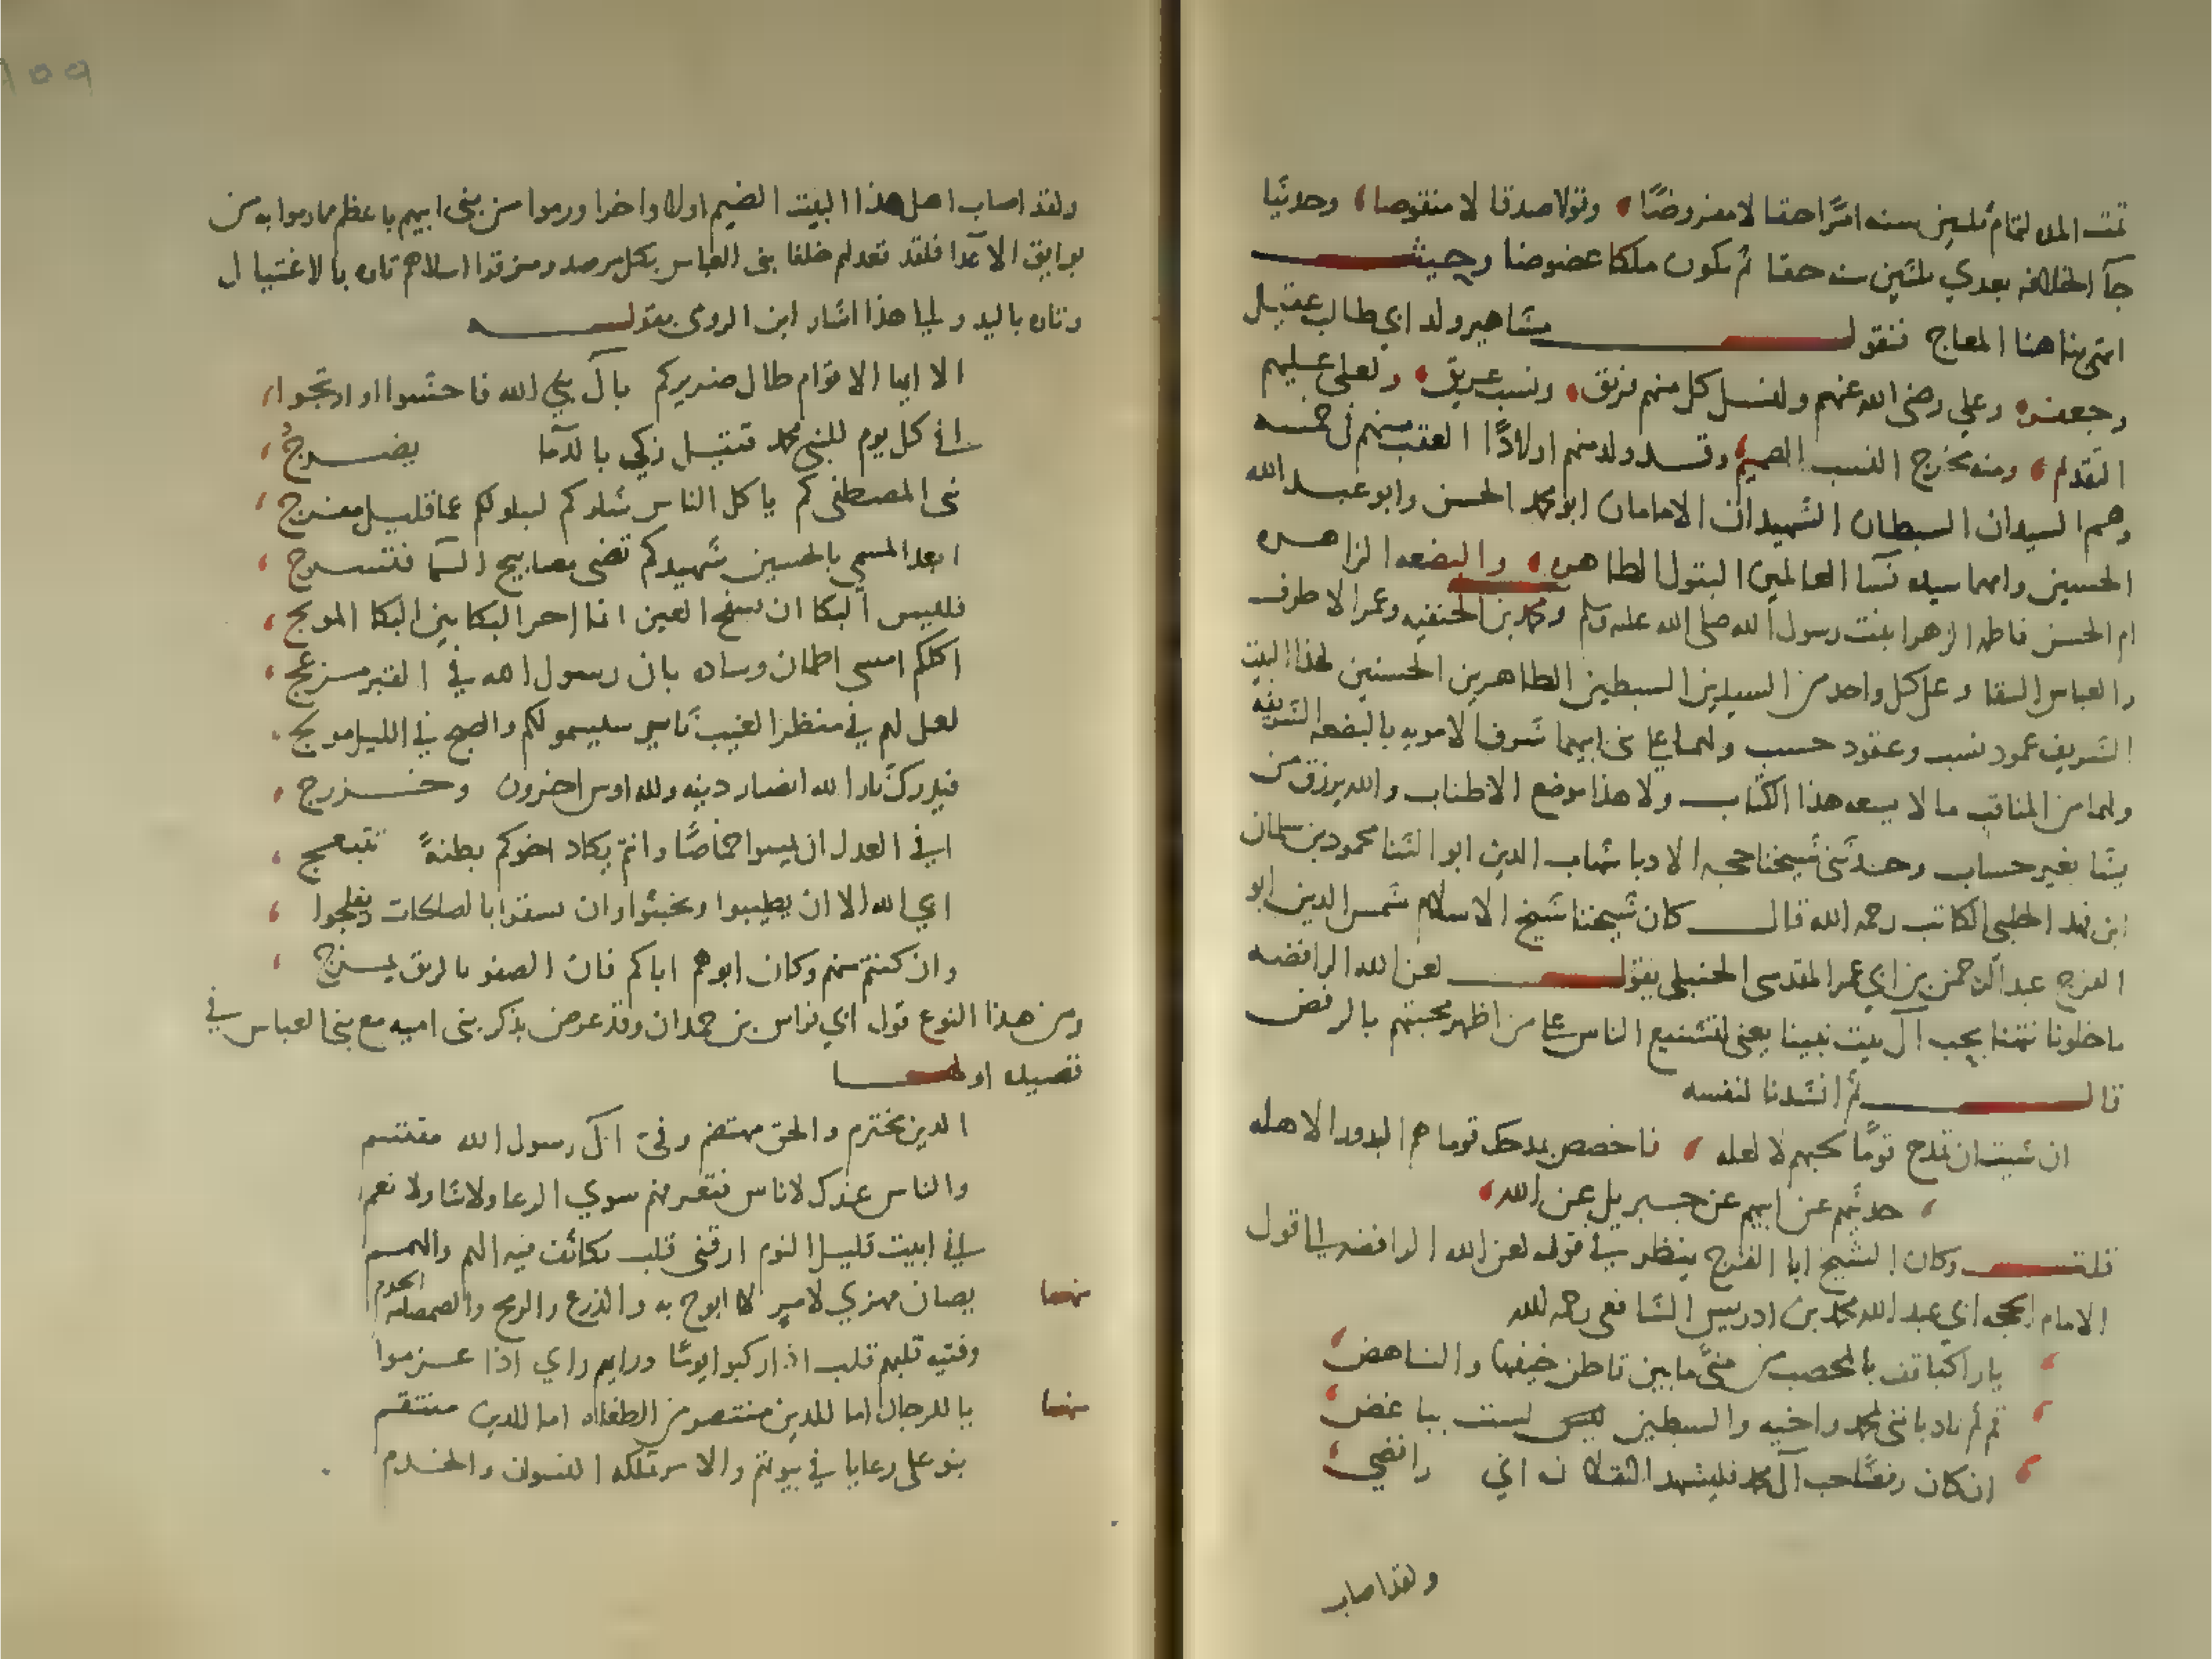 تمت المده لتمام ثلثين سنه امرًا حقا لا مفروضًا وقولا صدقا لا منقوصا وحديثا
جآ الخلافه بعدي ثلثين سنه حقا ثم يكون ملكا عضوضا وحيث
انتهى بنا هنا المعاج فنقول مشاهير ولد ابي طالب عقيل
وجعفر وعلي رضي الله عنهم ولنسل كل منهم فرق ونسب عريق ولعلي عليهم
التقدم ومنه يخرج النسب الصميم وقد ولد منهم اولادًا العقب منهم في خمسه
وهم السيدان السبطان الشهيدان الامامان ابو محمد الحسن وابو عبد الله
الحسين وامهما سيده نسآ العالمين البتول الطاهره والبضعه الزاهره
ام الحسن فاطمه الزهرا بنت رسول الله صلى الله عليه وسلم ومحمد بن الحنفيه وعمر الاطرف
والعباس السقا وعلى كل واحد من السيدين السبطين الطاهرين الحسنين لهذا البيت
الشريف عمود نسب وعقود حسب ولهما على بني ابيهما شرف الامويه بالبضعه الشريفه
ولهما من المناقب ما لا يسعه هذا الكتاب ولا هذا موضع الاطناب والله يرزق من
يشا بغير حساب وحدثني شيخنا حجه الادبا شهاب الدين ابو الثنا محمود بن سلمان
ابن فهد الحلبي الكاتب رحمه الله قال كان شيخنا شيخ الاسلام شمس الدين ابو
الفرج عبد الرحمن بن ابي عمر المقدسي الحنبلي يقول لعن الله الرافضه
ما خلونا نتهنا بحب آل بيت نبينا يعني لتشنيع الناس على من اظهر محبتهم بالرفض
قال ثم انشدنا لنفسه
ان شيت ان تمدح قومًا تحبهم لا لعله فاخصص بمدحك قوما هم البدور الاهله
حديثهم عن ابيهم عن جبريل عن الله
قلت وكان الشيخ ابا الفرج ينظر في قوله لعن الله الرافضه الى قول
الامام الحجه ابي عبد الله محمد بن ادريس الشافعي رحمه الله
يا راكبا قف بالمحصب من منىً ما بين قاطن خيفها والناهض
قم ثم ناد باننى لمحمد واخيه والسبطين لست بباغض
ان كان رفضًا حب آل محمد فليشهد الثقلان اني رافضي
ولقد اصاب
ولقد اصاب اهل هذا البيت الضيم اولا واخرا ورموا من بني ابيهم باعظم مما رموا به من
بوايق الاعدا فلقد تعد لهم خلفا بني العباس بكل مرصد ومزقوا اسلاهم تاره بالاغتيال
وتاره باليد والى هذا اشار ابن الرومي بقوله
الا ايها الاقوام طال ضريركم بآل نبي الله فاخشوا او ارتجوا
افي كل يوم للنبي محمد قتيل زكي بالدما يضرج
بني المصطفى كم ياكل الناس شلوكم لبلواكم عما قليل مفرج
ابعد المسمى بالحسين شهيدكم تضى مصابيح السما فتسرج
فليس البكا ان تسفح العين انما احر البكاين البكا المولج
اكلكم امسى اطمان وساده بان رسول الله في القبر مزعج
لعل لهم في منظر الغيب ثاير سيسمو لكم والصبح في الليل مولج
فيدرك ثار الله انصار دينه ولله اوس اخرون وخزرج
افي العدل ان يمسوا خماصًا وانتم يكاد اخوكم بطنةً تتبعج
ابي الله الا ان يطيبوا وتخبثوا وان يسبقوا بالصالحات ويفلجوا
وان كنتم منهم وكان ابوهم اباكم فان الصفو بالرنق يمزج
ومن هذا النوع قول ابي فراس بن حمدان وقد عرض بذكر بني اميه مع بني العباس في
قصيده اولها
الدين مخترم والحق مهتضم وفئ آل رسول الله مقتسم
والناس عندك لا ناس فتعرفهم سوي الرعا ولا شا ولا نعم
اني ابيت قليل النوم ارقني قلب تكاثف فيه الهم والهمم
منها يصان مهري لامر لا ابوح به والدرع والرمح والصمصامه الحذم
وفتيه قلبهم قلب اذا ركبوا يومًا ورايهم راي اذا عزموا
منها يا للرجال اما للدين منتصر من الطغاه اما للدين منتقم
بنو علي رعايا في بيوتهم والامر تملكه النسوان والخدم